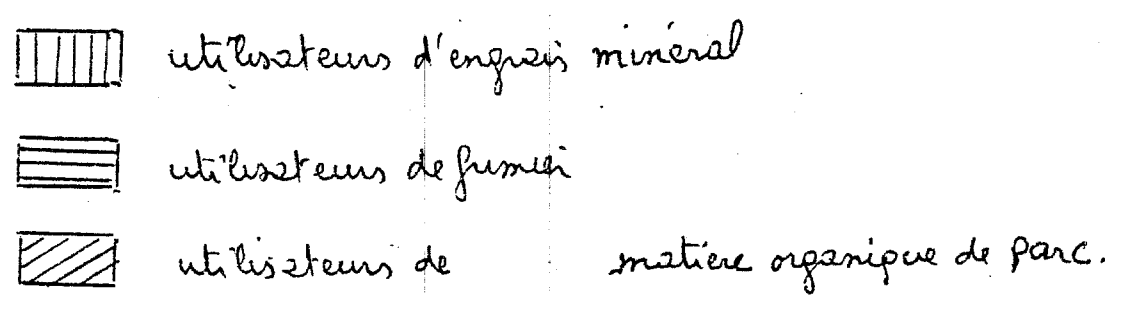 utilisateurs d'engrais minéral
utilisateurs de fumier
utilisateurs de matière organique de parc.